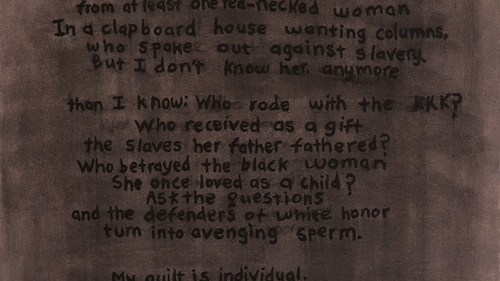 from at least one red-necked woman
In a clapboard house wanting columns,
who spoke out against slavery.
But I don't know her anymore
than I know: Who rode with the KKK?
Who received as a gift
the slaves her father fathered?
Who betrayed the black woman
She once loved as a child?
Ask the questions
and the defenders of white honor
turn into avenging sperm.
My guilt is individual.